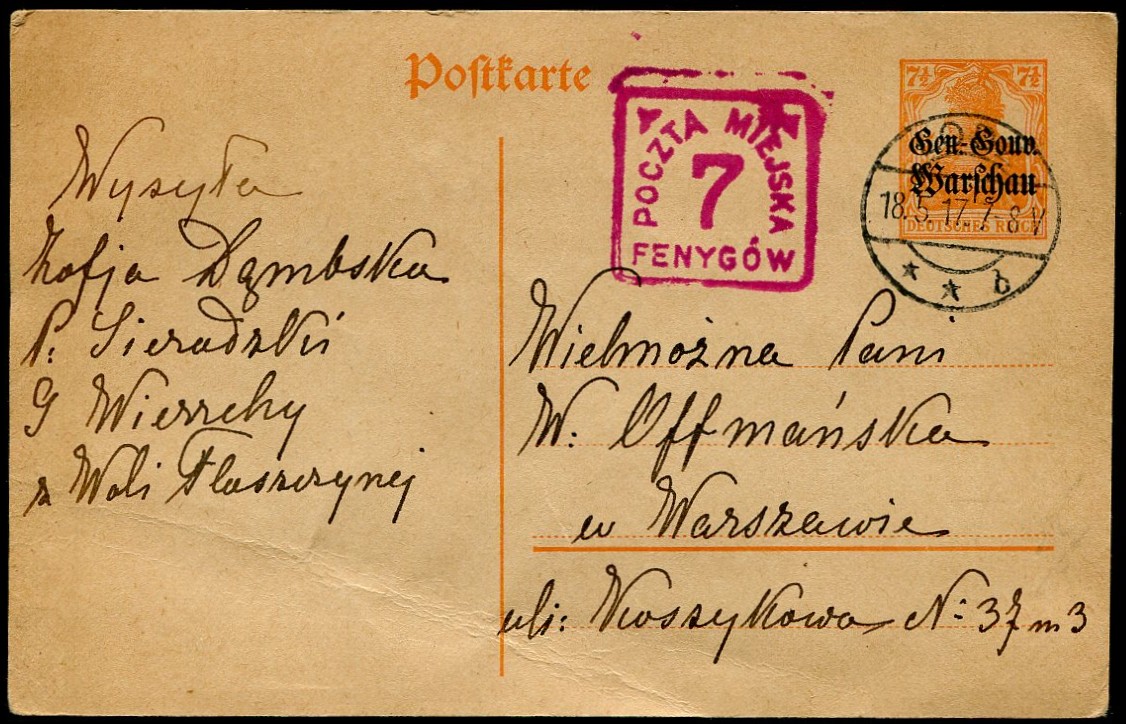 Postkarte
7½ 7½
Gen.-Gouv.
Warschau
DEUTSCHES REICH
18.5.17.7-8V
* * b
POCZTA MIEJSKA
7
FENYGÓW
Wysyła
Zofja Dąmbska
P: Sieradzki
G Wierzchy
z Woli Flaszczynej
Wielmożna Pani
W: Offmańska
w Warszawie
uli: Koszykowa N: 37 m 3